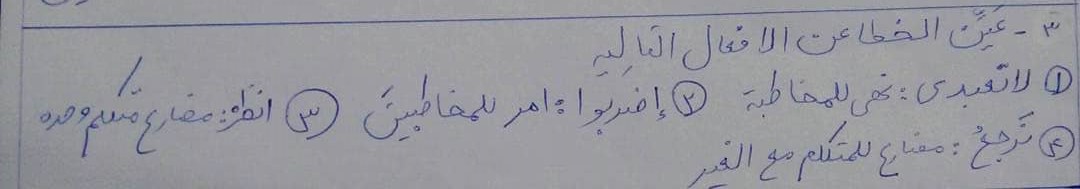 ٣ - عَيِّن الخطا عن الافعال التاليه
① لاتعبدی : نهی للمخاطبة ② إضربوا : امر للمخاطبينَ ③ انظرُ : مضارع متکلم وحده
④ نَرجعُ : مضارع للمتکلم مع الغير